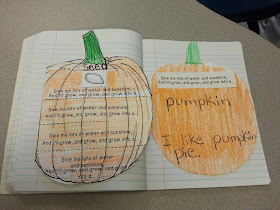 Seed
Give me lots of water and sunshine,
And I'll grow, and grow, and grow into a...
Give me lots of water and sunshine,
And I'll grow, and grow, and grow into a...
Give me lots of water and sunshine,
And I'll grow, and grow, and grow into a...
Give me lots of water
and sunshine,
And I'll grow, and grow, and grow into
a...
Give me lots of water and sunshine,
And I'll grow, and grow, and grow into a...
pumpkin
I like pumpkin
pie.